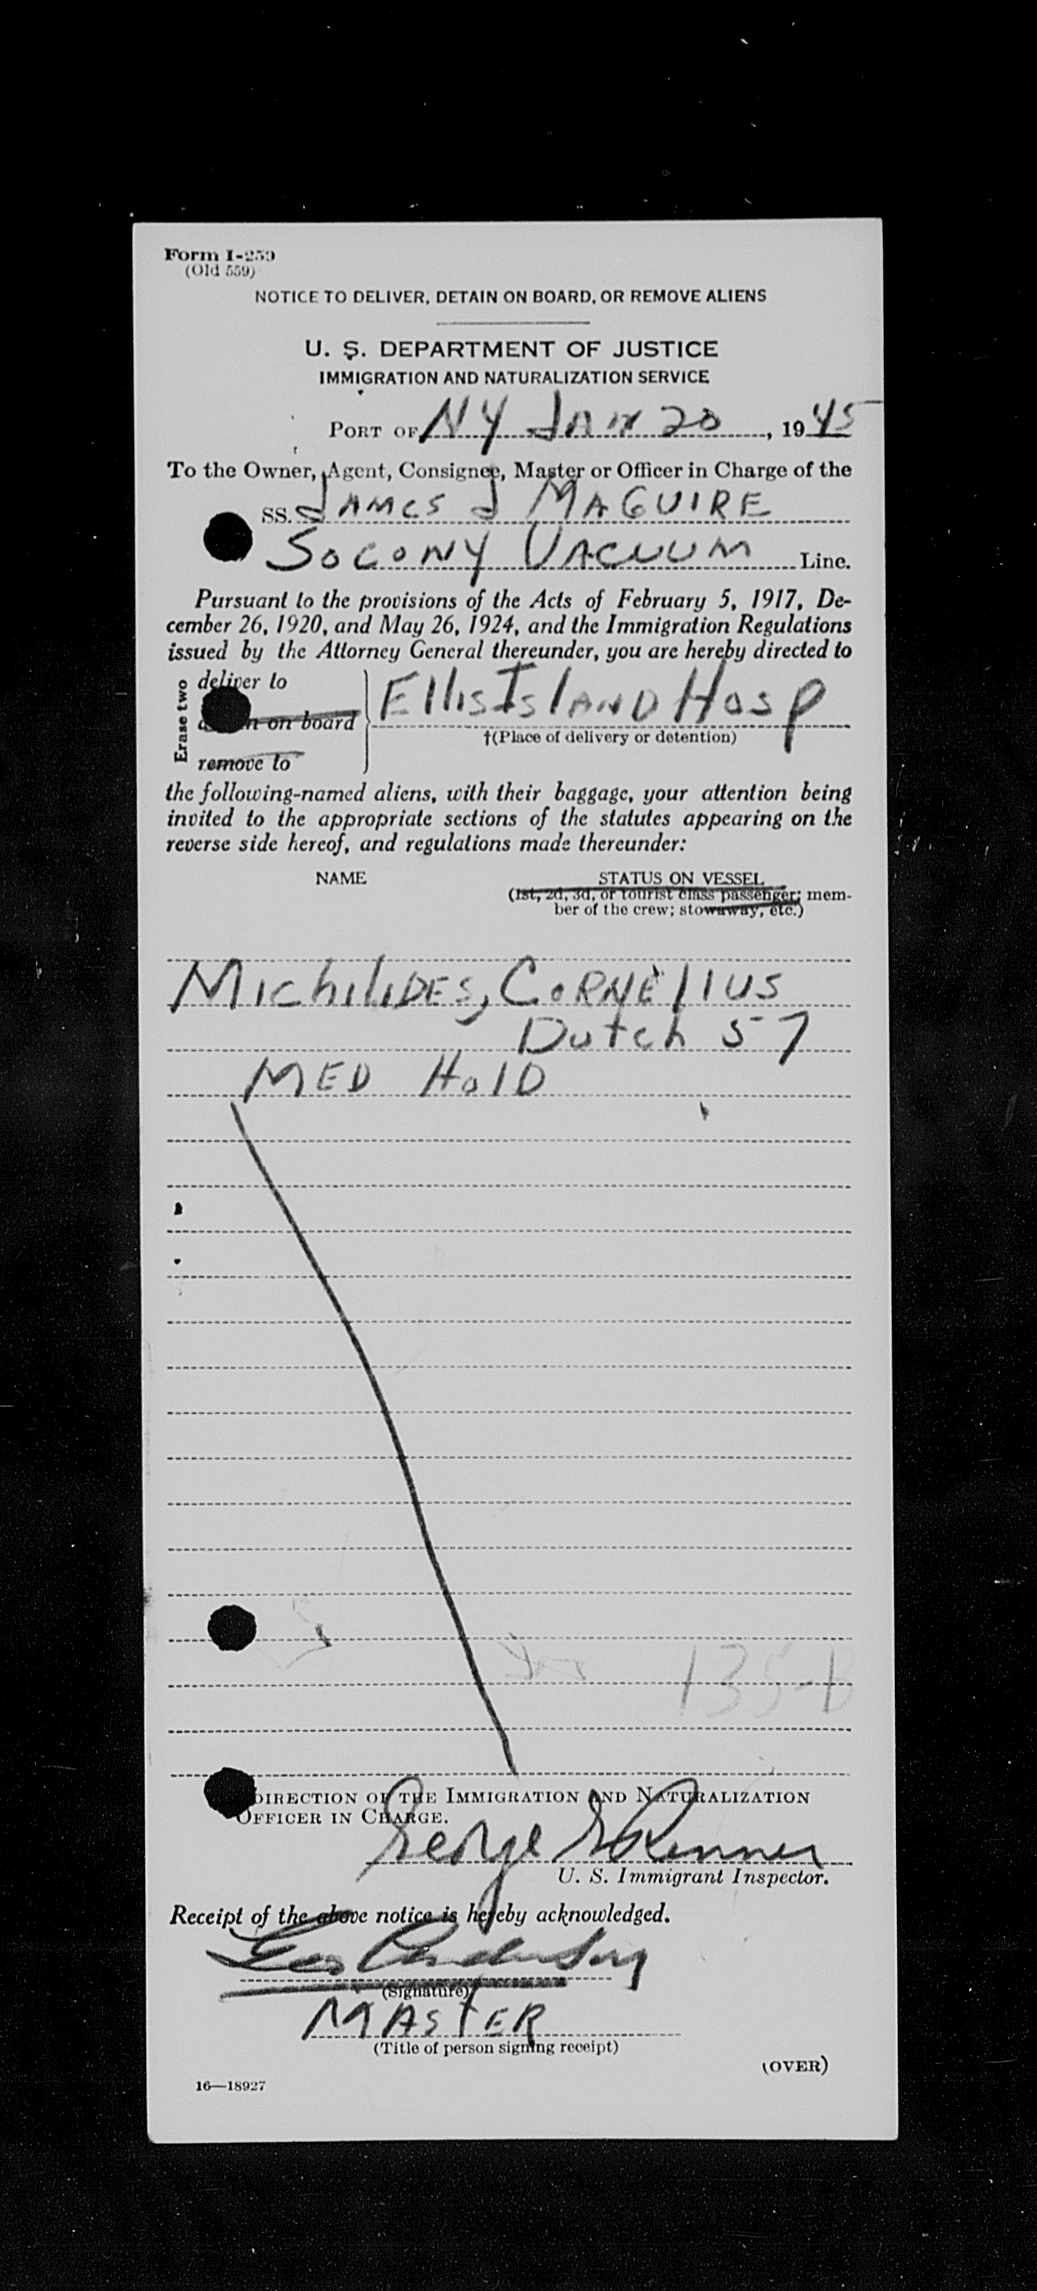 Form I-259
(Old 559)
NOTICE TO DELIVER, DETAIN ON BOARD, OR REMOVE ALIENS
U. S. DEPARTMENT OF JUSTICE
IMMIGRATION AND NATURALIZATION SERVICE
PORT OF NY JAN 20, 1945
To the Owner, Agent, Consignee, Master or Officer in Charge of the
SS. JAMES J MAGUIRE
SOCONY VACUUM Line.
Pursuant to the provisions of the Acts of February 5, 1917, De-
cember 26, 1920, and May 26, 1924, and the Immigration Regulations
issued by the Attorney General thereunder, you are hereby directed to
Erase two
deliver to
on board
remove to
Ellis Island Hosp
†(Place of delivery or detention)
the following-named aliens, with their baggage, your attention being
invited to the appropriate sections of the statutes appearing on the
reverse side hereof, and regulations made thereunder:
NAME STATUS ON VESSEL
(1st, 2d, 3d, or tourist class passenger; mem-
ber of the crew; stowaway, etc.)
Michilides, Cornelius
Dutch 57
MED HOLD
DIRECTION OF THE IMMIGRATION AND NATURALIZATION
OFFICER IN CHARGE.
George Renner
U. S. Immigrant Inspector.
Receipt of the above notice is hereby acknowledged.
(Signature)
MASTER
(Title of person signing receipt)
(OVER)
16—18927